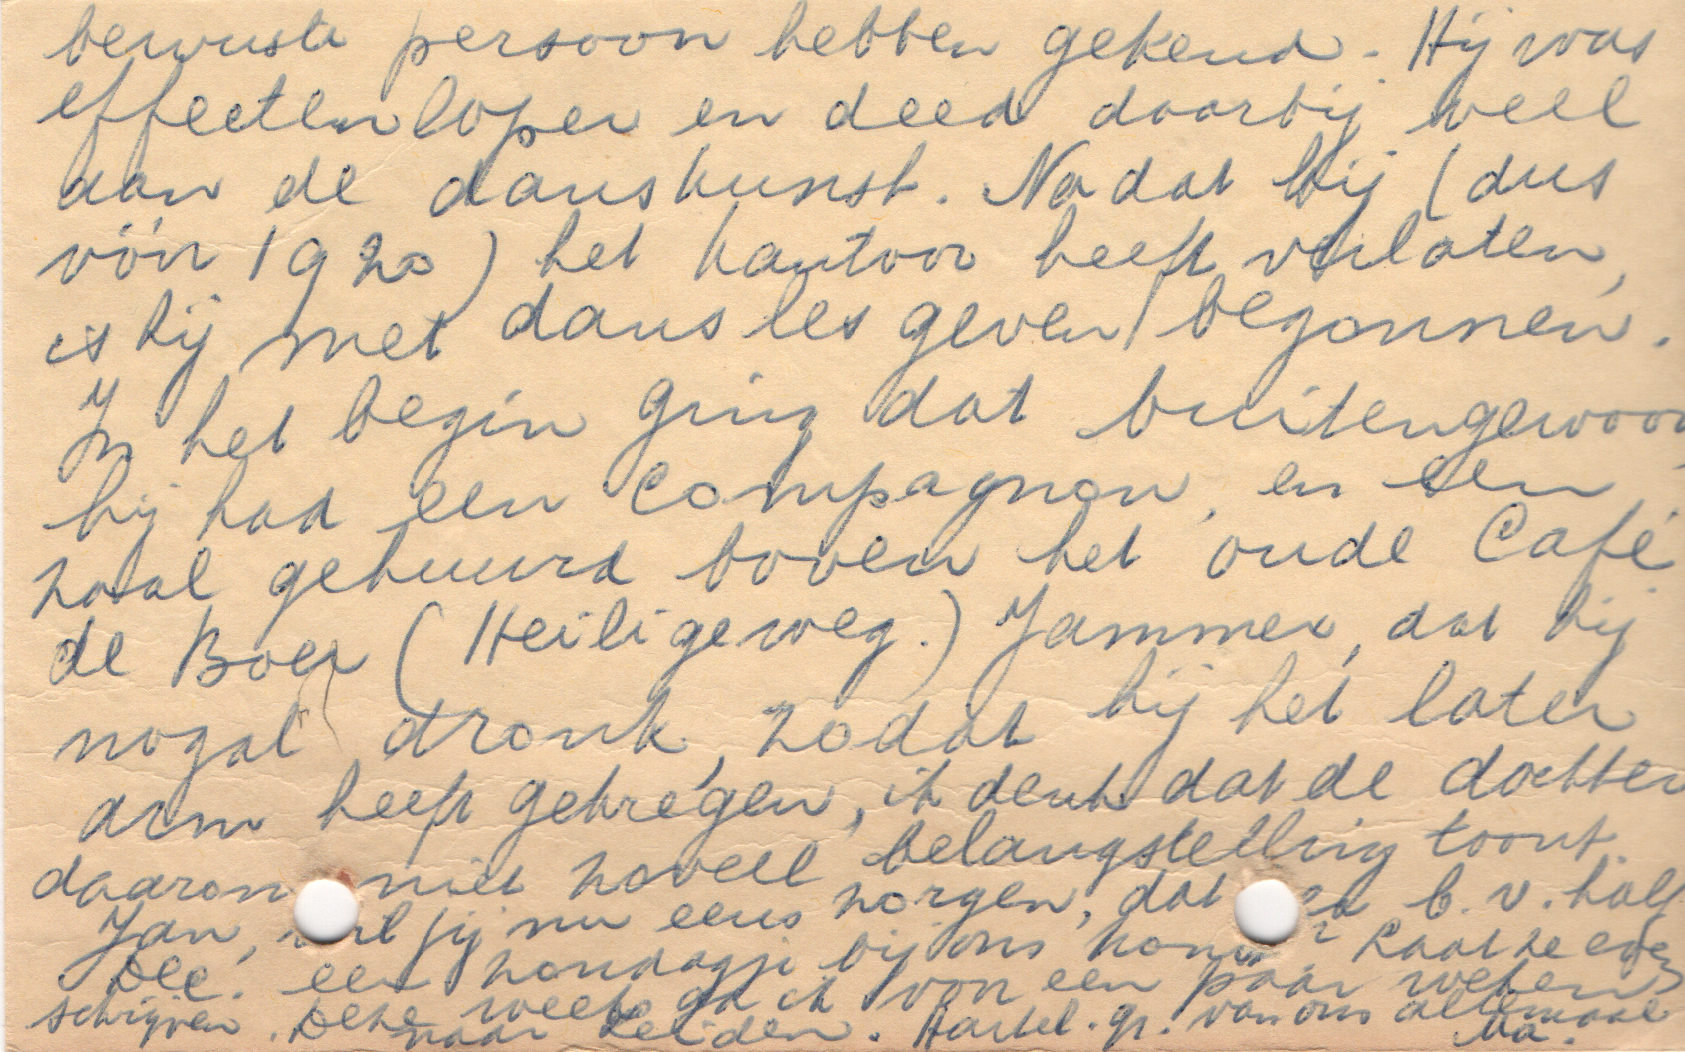 bewuste persoon hebben gekend. Hij was
effectenloper en deed daarbij veel
aan de danskunst. Nadat hij (dus
vóór 1920) het kantoor heeft verlaten,
is hij met dansles geven begonnen.
In het begin ging dat buitengewoon,
hij had een compagnon, en een
zaal gehuurd boven het oude Café
de Boer (Heiligeweg.) Jammer, dat hij
nogal dronk, zodat hij het later
arm heeft gekregen, ik denk dat de dochter
daarom niet zoveel belangstelling toont.
Jan, wil jij nu eens zorgen, dat b.v. half
Dec. een zondagje bij ons Laat ze even
schrijven. Deze week ga ik voor een paar weken
naar Leiden. Hartel. gr. van ons allemaal
Ma.